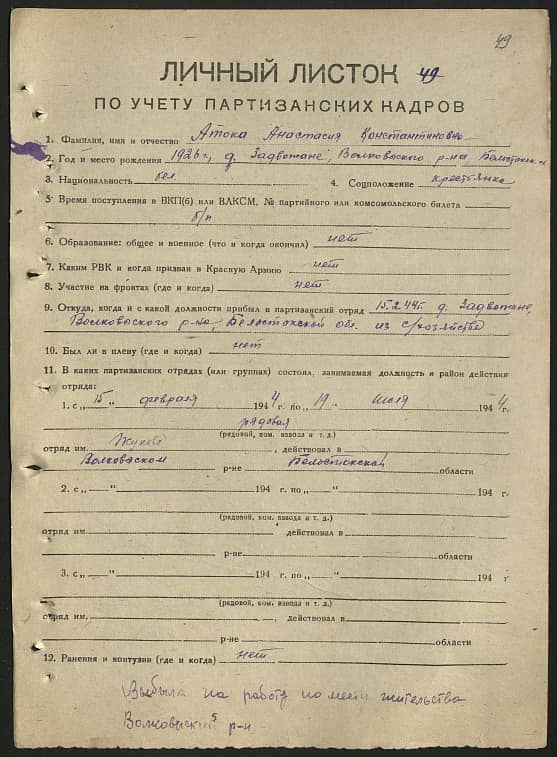 49
ЛИЧНЫЙ ЛИСТОК 49
ПО УЧЕТУ ПАРТИЗАНСКИХ КАДРОВ
1. Фамилия, имя и отчество Атока Анастасия Константиновна
2. Год и место рождения 1926 г, д. Задвотане, Волковоского р-на, Белостокск
3. Национальность бел. 4. Соцположение крестьянка
5. Время поступления в ВКП(б) или ВЛКСМ, № партийного или комсомольского билета
б/п
6. Образование: общее и военное (что и когда окончил) нет
7. Каким РВК и когда призван в Красную Армию нет
8. Участие на фронтах (где и когда) нет
9. Откуда, когда и с какой должности прибыл в партизанский отряд 15.2.44г. д. Задвотане,
Волковоского р-на, Белостокской обл. из с/хозяйства
10. Был ли в плену (где и когда) нет
11. В каких партизанских отрядах (или группах) состоял, занимаемая должность и район действия
отряда:
1. с „ 15 “ февраля 194 4 г. по „ 19 “ июля 194 4 г.
рядовая
(рядовой, ком. взвода и т. д.)
отряд им. Жукова, действовал в
Волковоском р-не Белостокской области
2. с „ “ 194 г. по „ “ 194 г.
(рядовой, ком. взвода и т. д.)
отряд им. действовал в
р-не области
3. с „ “ 194 г. по „ “ 194 г.
(рядовой, ком. взвода и т. д.)
отряд им. , действовал в
р-не области
12. Ранения и контузии (где и когда) нет
Выбыла на работу по месту жительства
Волковыский р-н